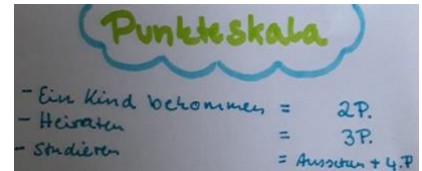 Punkteskala
- Ein Kind bekommen = 2P.
- Heiraten = 3P.
- Studieren = Aussetzen + 4.P